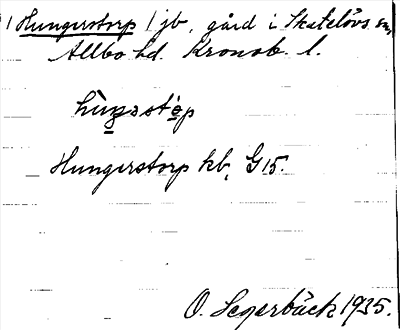 1 Hungerstorp 1 jb, gård i Skatelövs sn,
Allbo hd. Kronob. l.
Hungerstorp kb, G 15.
O. Segerbäck 1935.